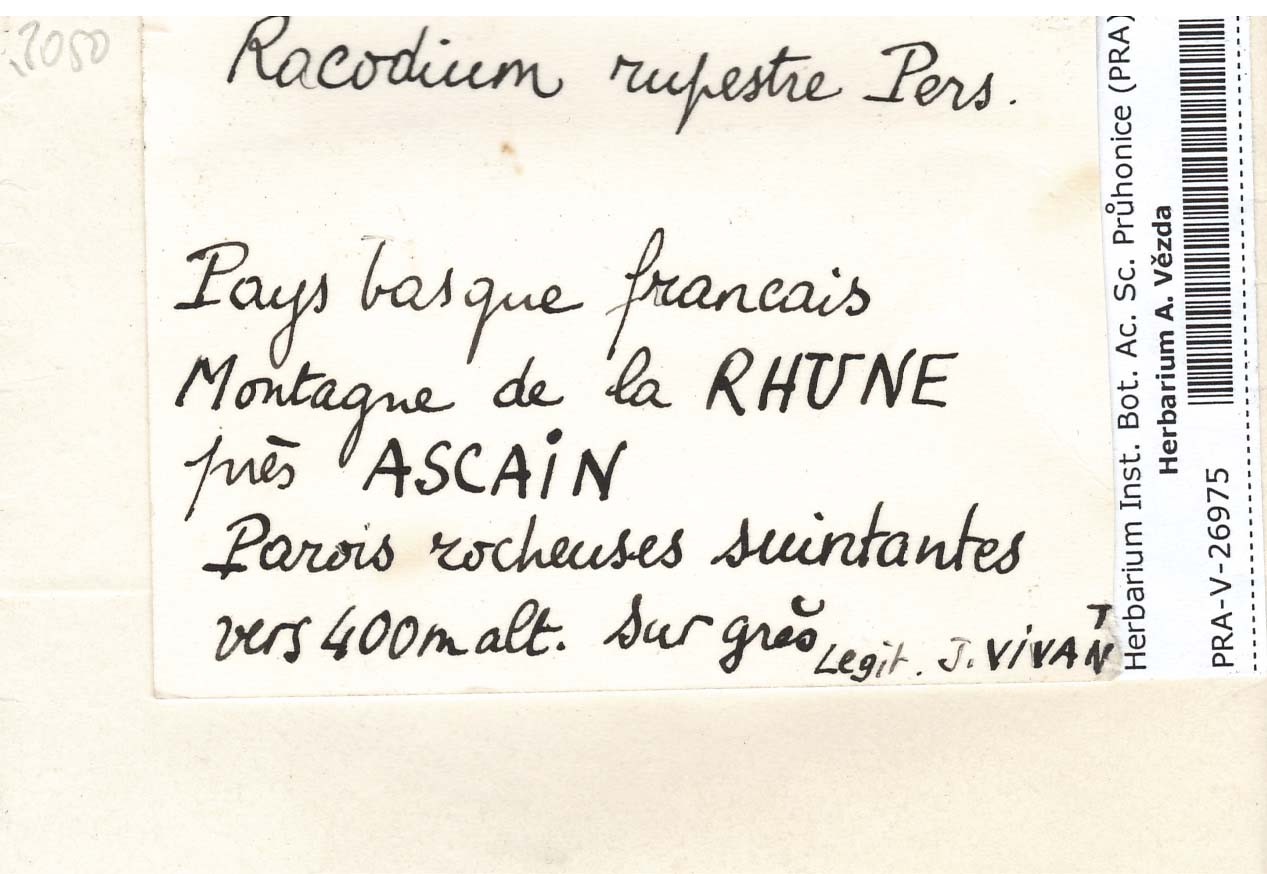 Racodium rupestre Pers.
Pays basque francais
Montagne de la RHUNE
près ASCAIN
Parois rocheuses suintantes
vers 400m alt. sur grès
Legit. J. VIVANT
Herbarium Inst. Bot. Ac. Sc. Průhonice (PRA)
Herbarium A. Vězda
PRA-V-26975